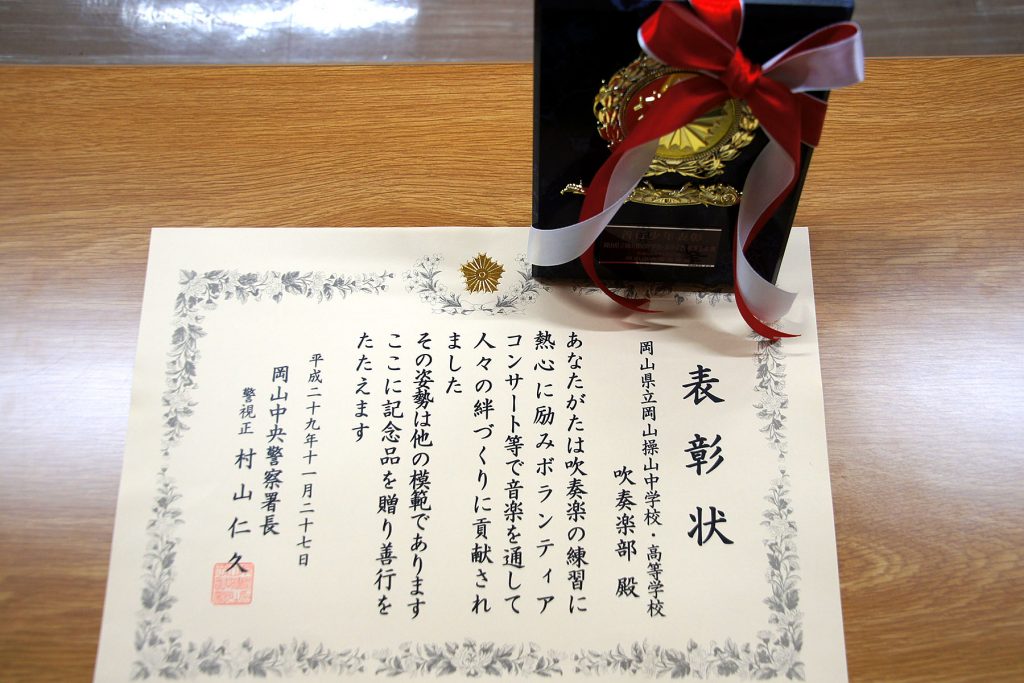 表彰状
岡山県立岡山操山中学校・高等学校
吹奏楽部 殿
あなたがたは吹奏楽の練習に
熱心に励みボランティア
コンサート等で音楽を通して
人々の絆づくりに貢献され
ました
その姿勢は他の模範であります
ここに記念品を贈り善行を
たたえます
平成二十九年十一月二十七日
岡山中央警察署長
警視正 村山仁久